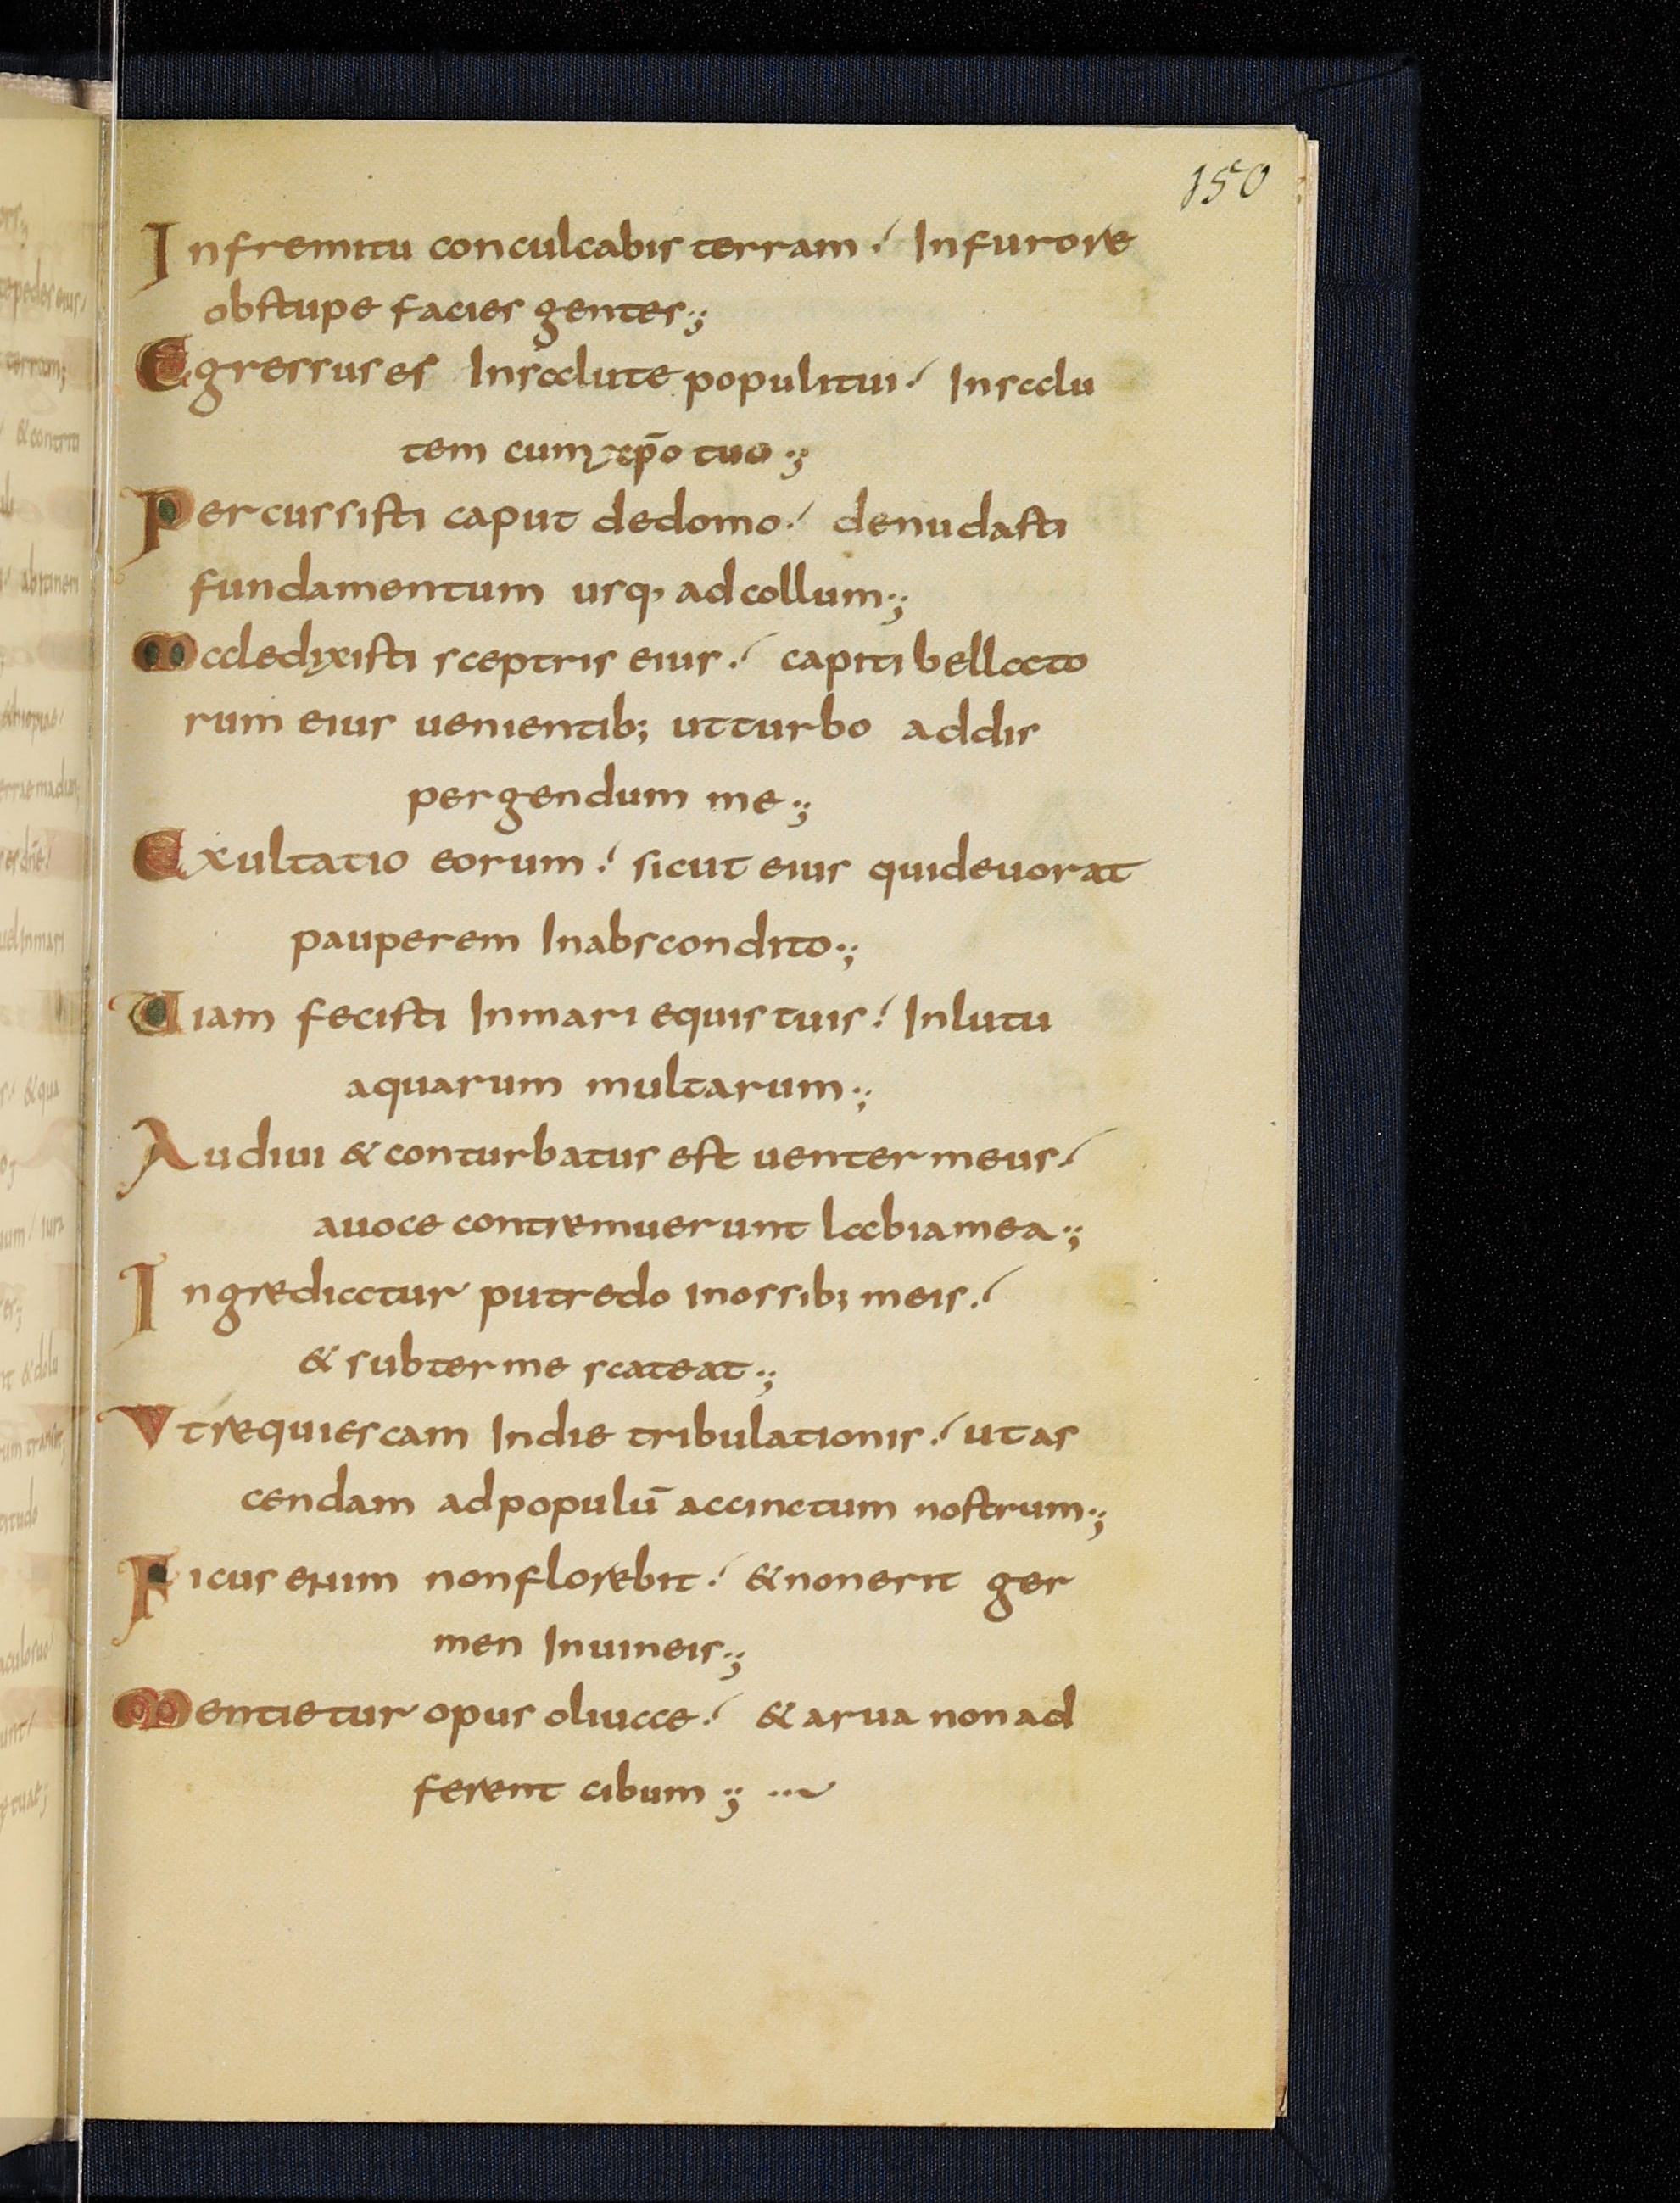 150
In fremitu conculcabis terram. In furore
obstupe facies gentes;
Egressus es In salute populi tui. In salu
tem cum xp̄o tuo;
Percussisti caput dedomo. denudasti
fundamentum usq, ad collum;
Maledyxisti sceptris eius. capiti bellato
rum eius uenientib; ut turbo addis
pergendum me;
Exultatio eorum. sicut eius qui deuorat
pauperem In abscondito;
Uiam fecisti In mari equis tuis. In lutu
aquarum multarum;
Audiui & conturbatus est uenter meus.
a uoce contremuerunt labia mea;
Ingrediatur putredo in ossib; meis.
& subter me scateat;
Vt requiescam In die tribulationis. ut as
cendam ad populū accinctum nostrum;
Ficus enim non florebit. & non erit ger
men In uineis;
Mentietur opus oliuae. & arua non ad
ferent cibum;